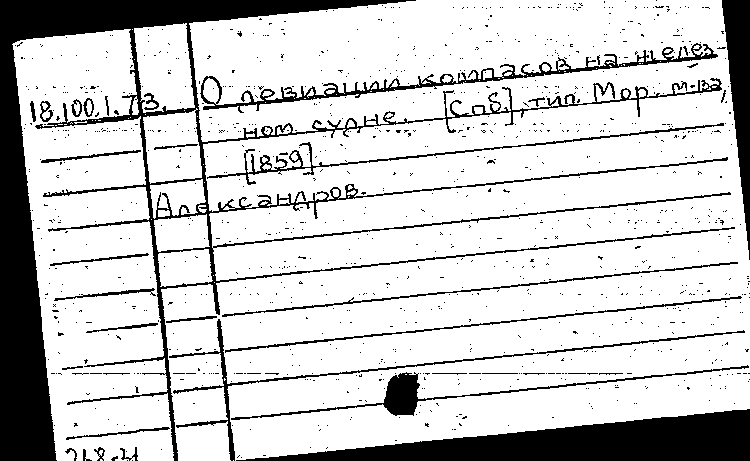 18.100.1.73. О девиации компасов на желез
ном судне. [Спб.], тип. Мор. м-ва,
[1859].
Александров.